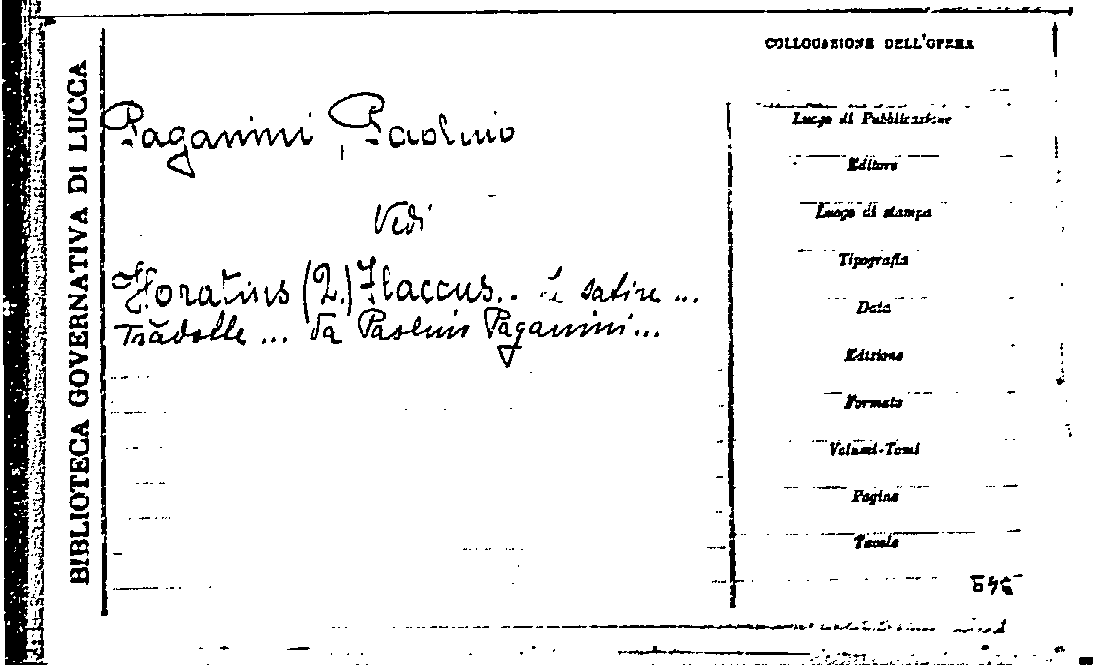 BIBLIOTECA GOVERNATIVA DI LUCCA
Paganini, Paolino
Vedi
Horatius (Q.) Flaccus.. Le satire ...
Tradotte ... da Paolino Paganini...
COLLOCAZIONE DELL'OPERA
Luogo di Pubblicazione
Editore
Luogo di stampa
Tipografia
Data
Edizione
Formato
Volumi-Tomi
Pagine
Tavole